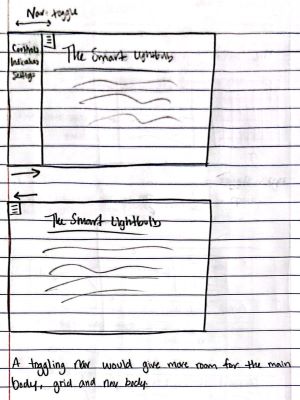 Nav toggle
Controls
Indicators
Settings
The Smart Lightbulb
The Smart Lightbulb
A toggling nav would give more room for the main
body, grid and nav body.